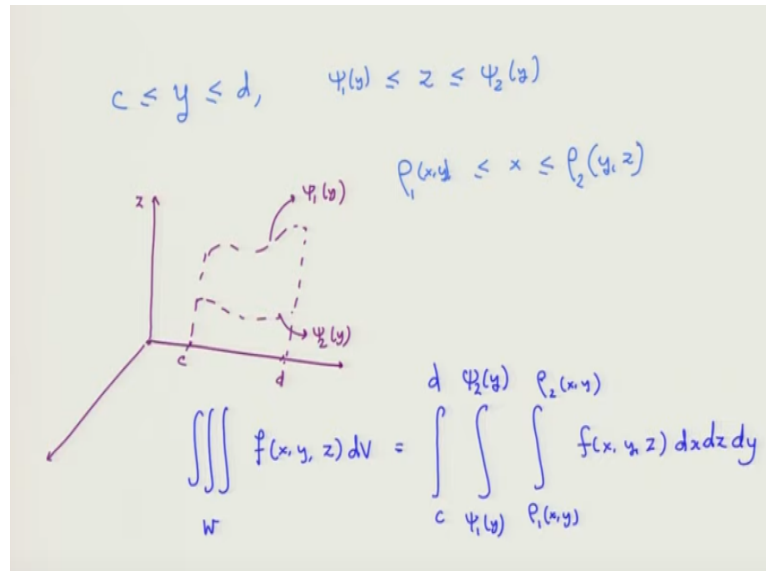 c ≤ y ≤ d, ψ₁(y) ≤ z ≤ ψ₂(y)
ρ₁(x,y) ≤ x ≤ ρ₂(y, z)
z
ψ₁(y)
ψ₂(y)
c
d
∭_W f(x, y, z) dV = ∫_c^d ∫_{ψ₁(y)}^{ψ₂(y)} ∫_{ρ₁(x,y)}^{ρ₂(x,y)} f(x, y, z) dx dz dy